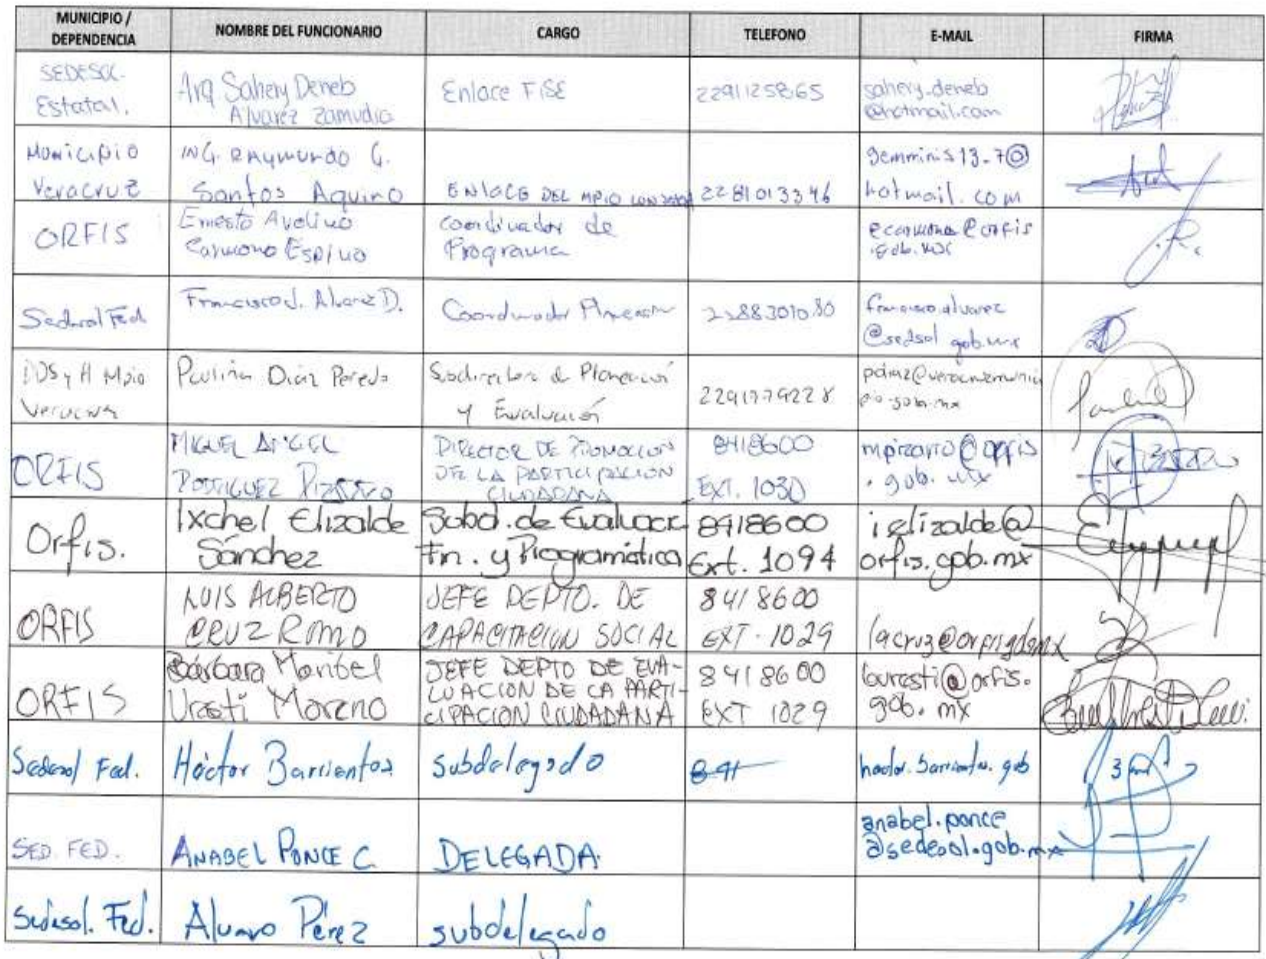 MUNICIPIO / DEPENDENCIA NOMBRE DEL FUNCIONARIO CARGO TELEFONO E-MAIL FIRMA
SEDESOL Estatal. Arq Sahery Deneb Alvarez Zamudio Enlace FISE 2291125865 sahery.deneb @hotmail.com
Municipio Veracruz ING. RAYMUNDO G. Santos Aquino ENLACE DEL MPIO 2281013346 gemminis13-7@ hotmail.com
ORFIS Ernesto Avelino Carmona Espino Coordinador de Programa ecarmona@orfis .gob.mx
Sedesol Fed Francisco J. Alvarez D. Coordinador Planeación 2288301080 francisco.alvarez @sedsol.gob.mx
DDS y H Mpio Veracruz Paulina Díaz Peredo Subdirectora de Planeación y Evaluación 2291779228
ORFIS MIGUEL ANGEL RODRIGUEZ PIZARRO DIRECTOR DE PROMOCIÓN DE LA PARTICIPACIÓN CIUDADANA 8418600 EXT. 1030 mpizarro@orfis .gob.mx
Orfis. Ixchel Elizalde Sánchez Subd. de Evaluac. Fin. y Programática 8418600 Ext. 1094 ielizalde@ orfis.gob.mx
ORFIS LUIS ALBERTO CRUZ ROMO JEFE DEPTO. DE CAPACITACION SOCIAL 8418600 EXT. 1029
ORFIS Bárbara Maribel Uresti Moreno JEFE DEPTO DE EVA- LUACION DE LA PARTI- CIPACION CIUDADANA 8418600 EXT 1029 buresti@orfis. gob.mx
Sedesol Fed. Héctor Barrientos subdelegado 841 hector.barrientos.gob
SED. FED. ANABEL PONCE C. DELEGADA anabel.ponce @sedesol.gob.mx
Sedesol. Fed. Alvaro Pérez subdelegado